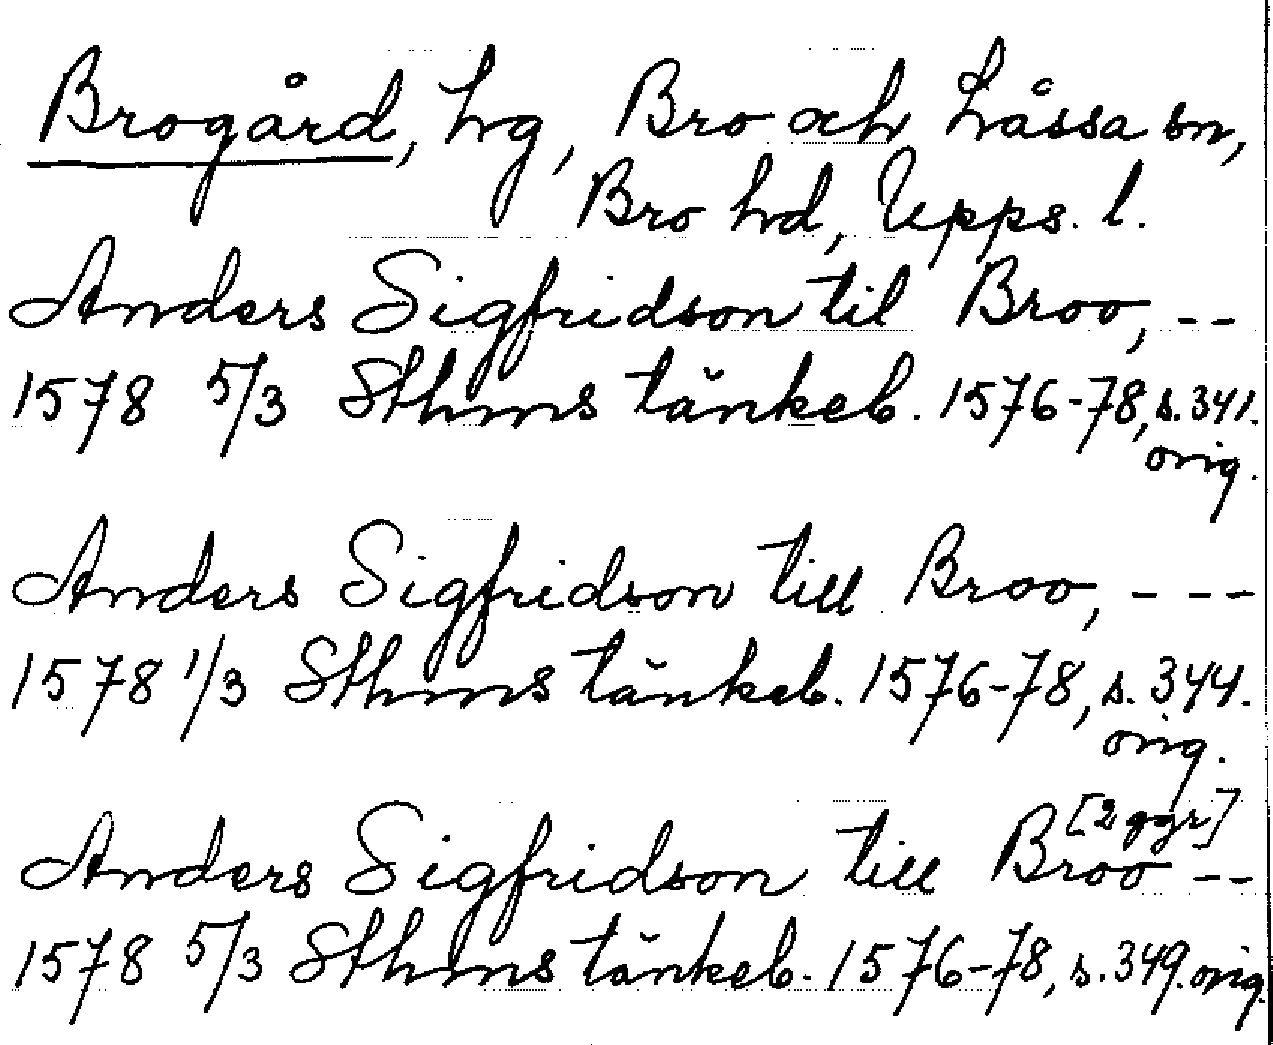 Brogård, hg, Bro och Låssa sn,
Bro hd, Upps. l.
Anders Sigfridson til Broo, --
1578 5/3 Sthms tänkeb. 1576-78, s. 341.
orig.
Anders Sigfridson till Broo, ---
1578 1/3 Sthms tänkeb. 1576-78, s. 344.
orig.
[2 ggr]
Anders Sigfridson till Broo --
1578 5/3 Sthms tänkeb. 1576-78, s. 349. orig.